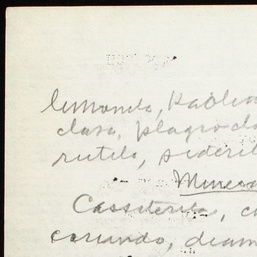 limonita, Kaolin
clasa, plagiocla
rutilo, sideri
Minera
Cassiterita, co
corindo, diam